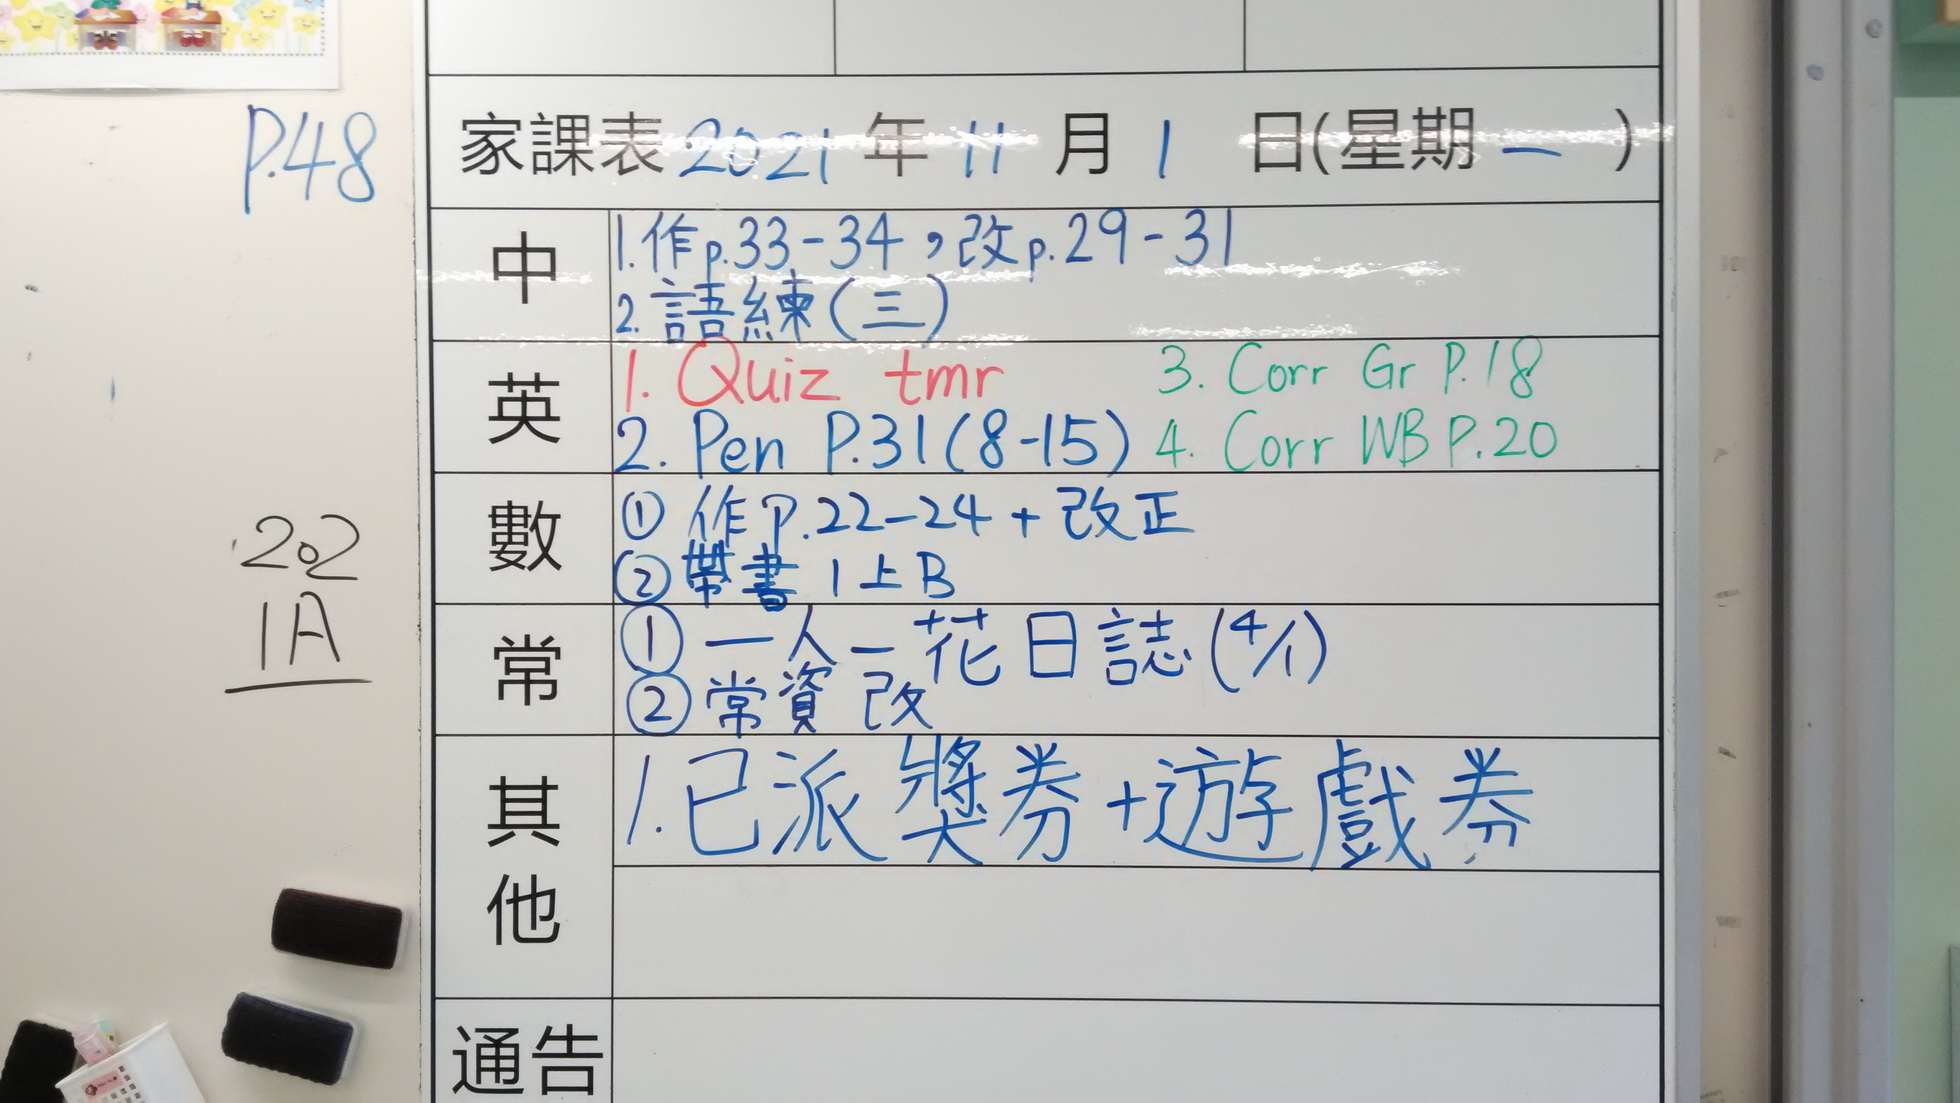 P.48
202
1A
家課表 2021 年 11 月 1 日(星期 一 )
中
1. 作p.33-34，改p.29-31
2. 語練(三)
英
1. Quiz tmr
2. Pen P.31(8-15)
3. Corr Gr P.18
4. Corr WB P.20
數
① 作P.22-24 + 改正
② 帶書 1上B
常
① 一人一花日誌(4/1)
② 常資 改
其他
1. 已派獎券+遊戲券
通告